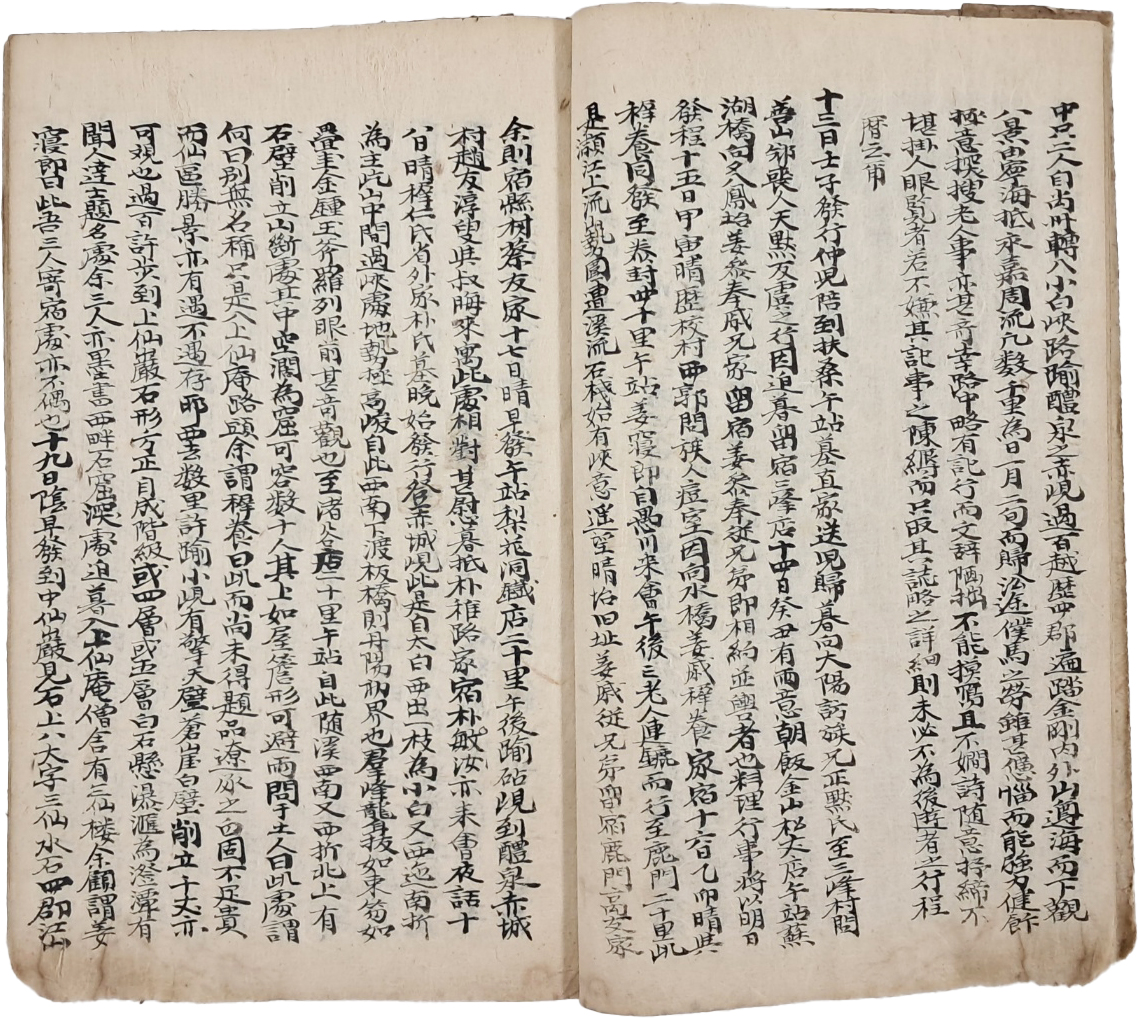 中只二人自尚州轉八小白峽路踰醴泉之赤峴過百越歷四郡遍踏金剛內外山遵海而下觀
八景由寧海抵永嘉周流凡数千里為日一月二旬而歸塗僕馬之労雖甚憊惱而能強力健飰
極意探搜老人事亦甚奇幸路中略有記行而文辞陋拙不能摸寫且不嫺詩随意抒締不
堪掛人眼覧者若不嫌其記事之陳縟而只取其誌略之詳細則未必不為後遊者之行程
曆之前
十二日士子發行仲児陪到扶桑午站墓直家送児歸暮向大陽訪族兄正黙氏至三峰村問
善山邨喪人天黙友虞之行因迫暮留宿三峰店十四日癸丑有雨意朝飯金山松大店午站蘇
湖橋向夕八鳳坮姜叅奉戚兄家留宿姜叅奉従兄弟即相約並轡者也料理行事将以明日
發程十五日甲寅晴歷校村西郭問族人痘室因向水橋姜戚穉養家宿十六日乙卯晴與
穉養同發至卷封四十里午站姜寢郎自愚川来會午後三老人連轡而行至鹿門二十里此
是瀬江上流㔟圓遭溪流石栈始有峽意遥望晴坮旧址姜戚従兄弟留宿鹿門高友家
余則宿縣村蔡友家十七日晴早發午站梨花洞驖店二十里午後踰砧峴到醴泉赤城
村趙友淳叟與叔晦来寓此處相對甚慰暮抵朴稚路家宿朴敏汝亦来會夜話十
八日晴穉仁氏省外家朴氏墓晚始發行登赤城峴此是自太白西出一枝為小白又西迤南折
為主屹山中間過峽處地㔟極高峻自此西南下渡板橋則丹陽初界也羣峰聳抜如束笏如
疊圭金鍾玉斧羅列眼前甚奇觀也至渚谷店二十里午站自此随溪西南又西折北上有
石壁削立山斷處其中空濶為窟可容数十人其上如屋簷形可避雨問于土人曰此處謂
何曰别無名稱只是入上仙庵路頭余謂穉養曰此而尚未得題品遼豕之白固不足貴
而仙區勝景亦有遇不遇存耶西去数里許踰小峴有擎天壁蒼崖白壁削立千丈亦
可観也過一百許步到上仙巖石形方正自成階級或四層或五層白石懸瀑滙為澄潭有
聞人達士題名處余三人亦墨書西畔石窟深處迫暮入上仙庵僧舍有三仙楼余顧謂姜
寢郎曰此吾三人寄宿處亦不偶也十九日陰早發到中仙巖見石上六大字三仙水石四郡江山